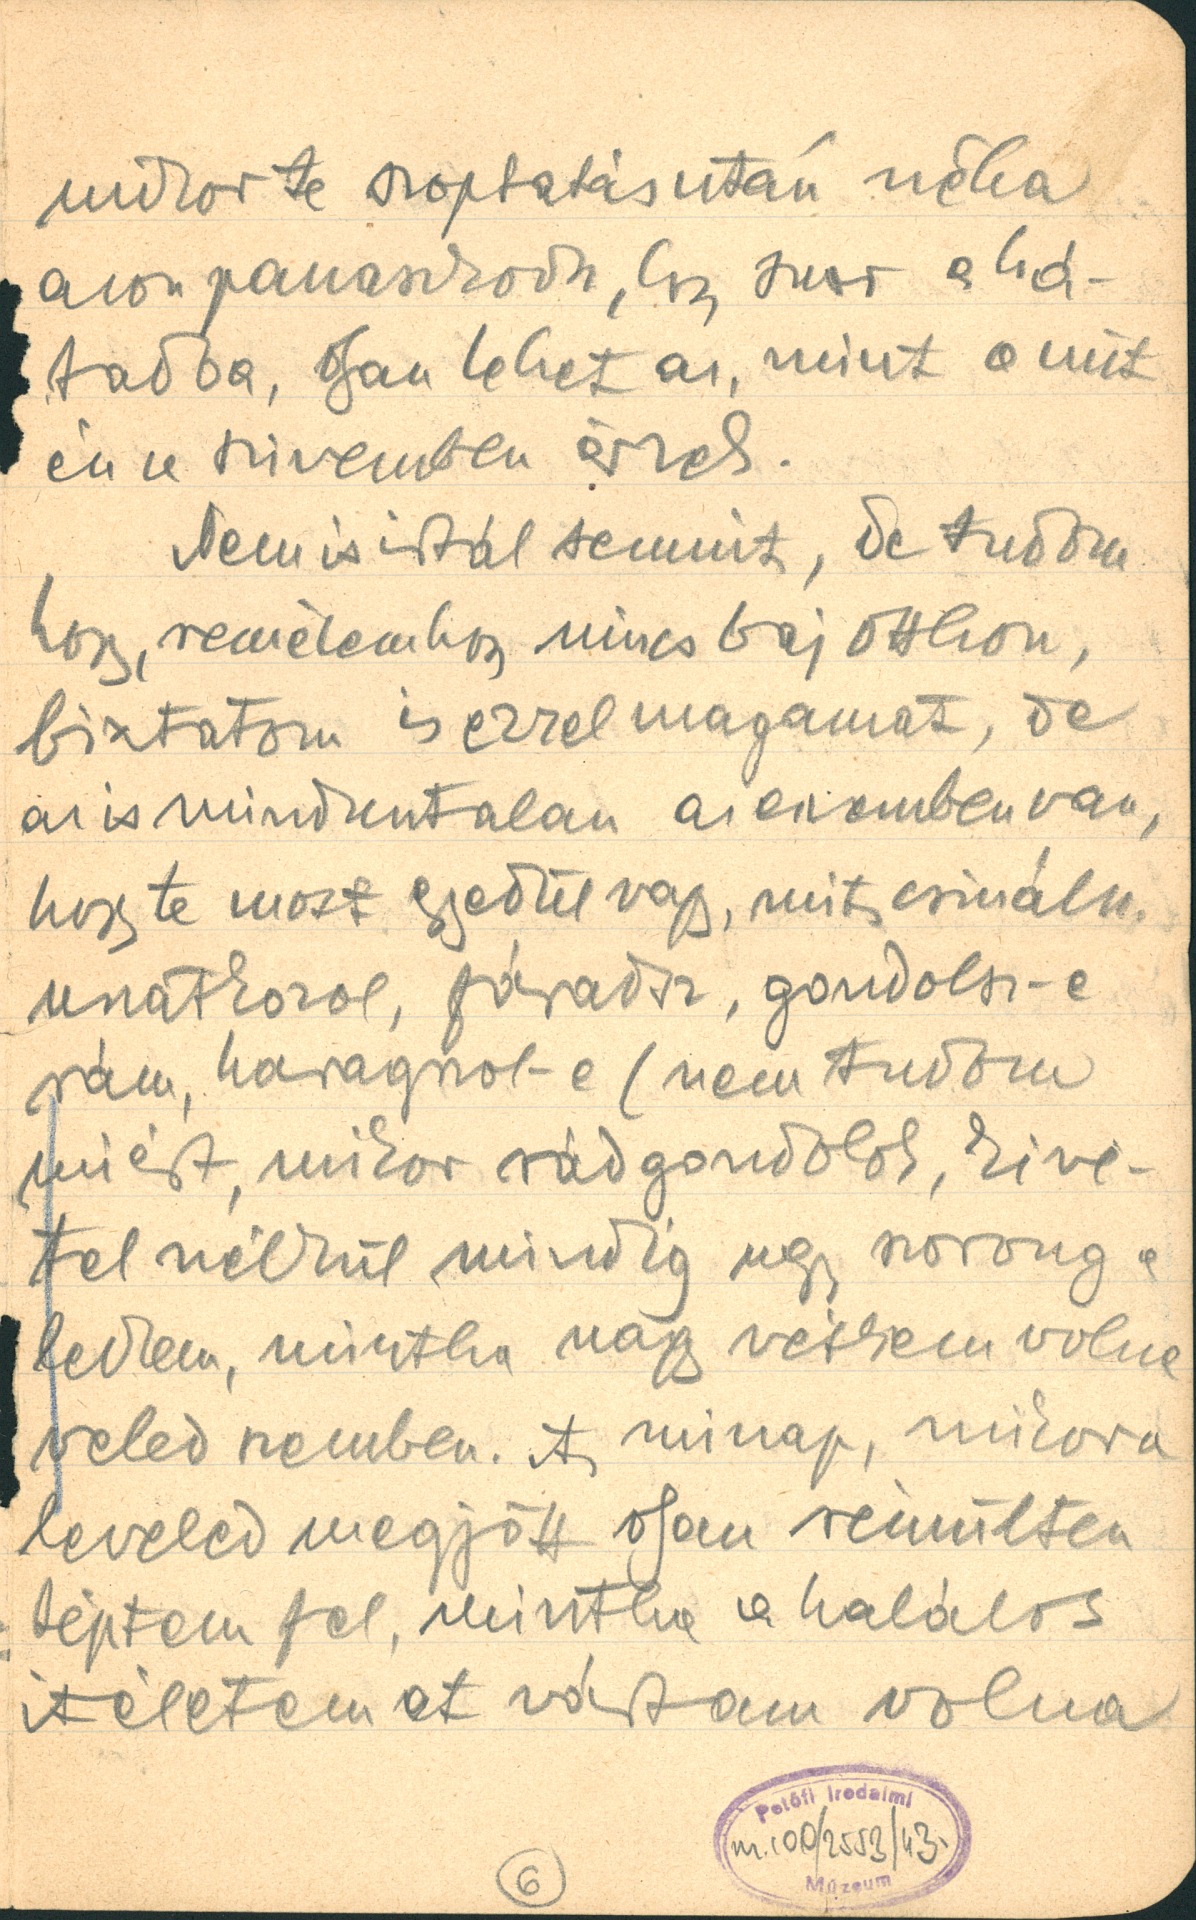 mikor te szoptatás után néha
azon panaszkodsz, hogy szur a há-
tadba, olyan lehet az, mint amit
én a szivemben érzek.
Nem is irtál semmit, de tudom
hogy, remélem hogy nincs baj otthon,
biztatom is ezzel magamat, de
az is minduntalan az eszemben van,
hogy te most egyedül vagy, mit csinálsz.
unatkozol, fáradsz, gondolsz-e
rám, haragszol-e (nem tudom
miért, mikor rád gondolok, kivé-
tel nélkül mindig ugy szorong a
lelkem, mintha nagy vétkem volna
veled szemben. A minap, mikor a
leveled megjött olyan rémülten
téptem fel, mintha a halálos
itéletemet vártam volna
6
Petőfi Irodalmi
Múzeum